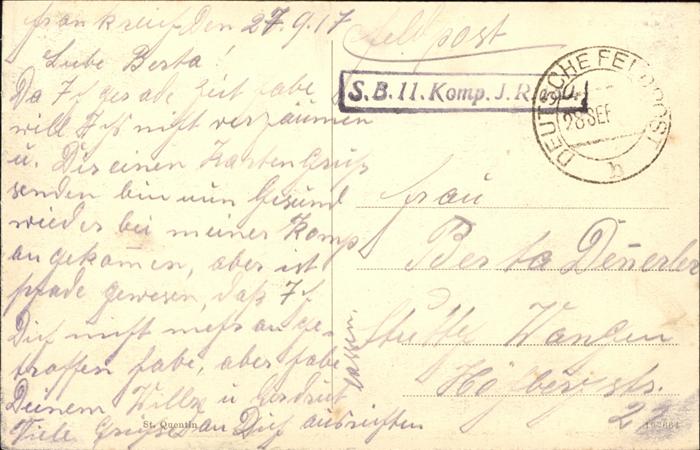 Frankreich den 27.9.17
Liebe Berta!
Da Ich gerade Zeit habe
will Ichs nicht versäumen
u. Dir einen Kartengruß
senden bin nun Gesund
wieder bei meiner Komp
angekommen, aber ist
schade gewesen, daß Ich
Dich nicht mehr ange-
troffen habe, aber habe
Deinem Willy u
Viele Grüße an Dich ausrichten
lassen.
Feldpost
S. B. 11. Komp. J. R.
DEUTSCHE FELDPOST
28 SEP
b
Frau
Berta
Stuttg. Wangen
str.
St. Quentin